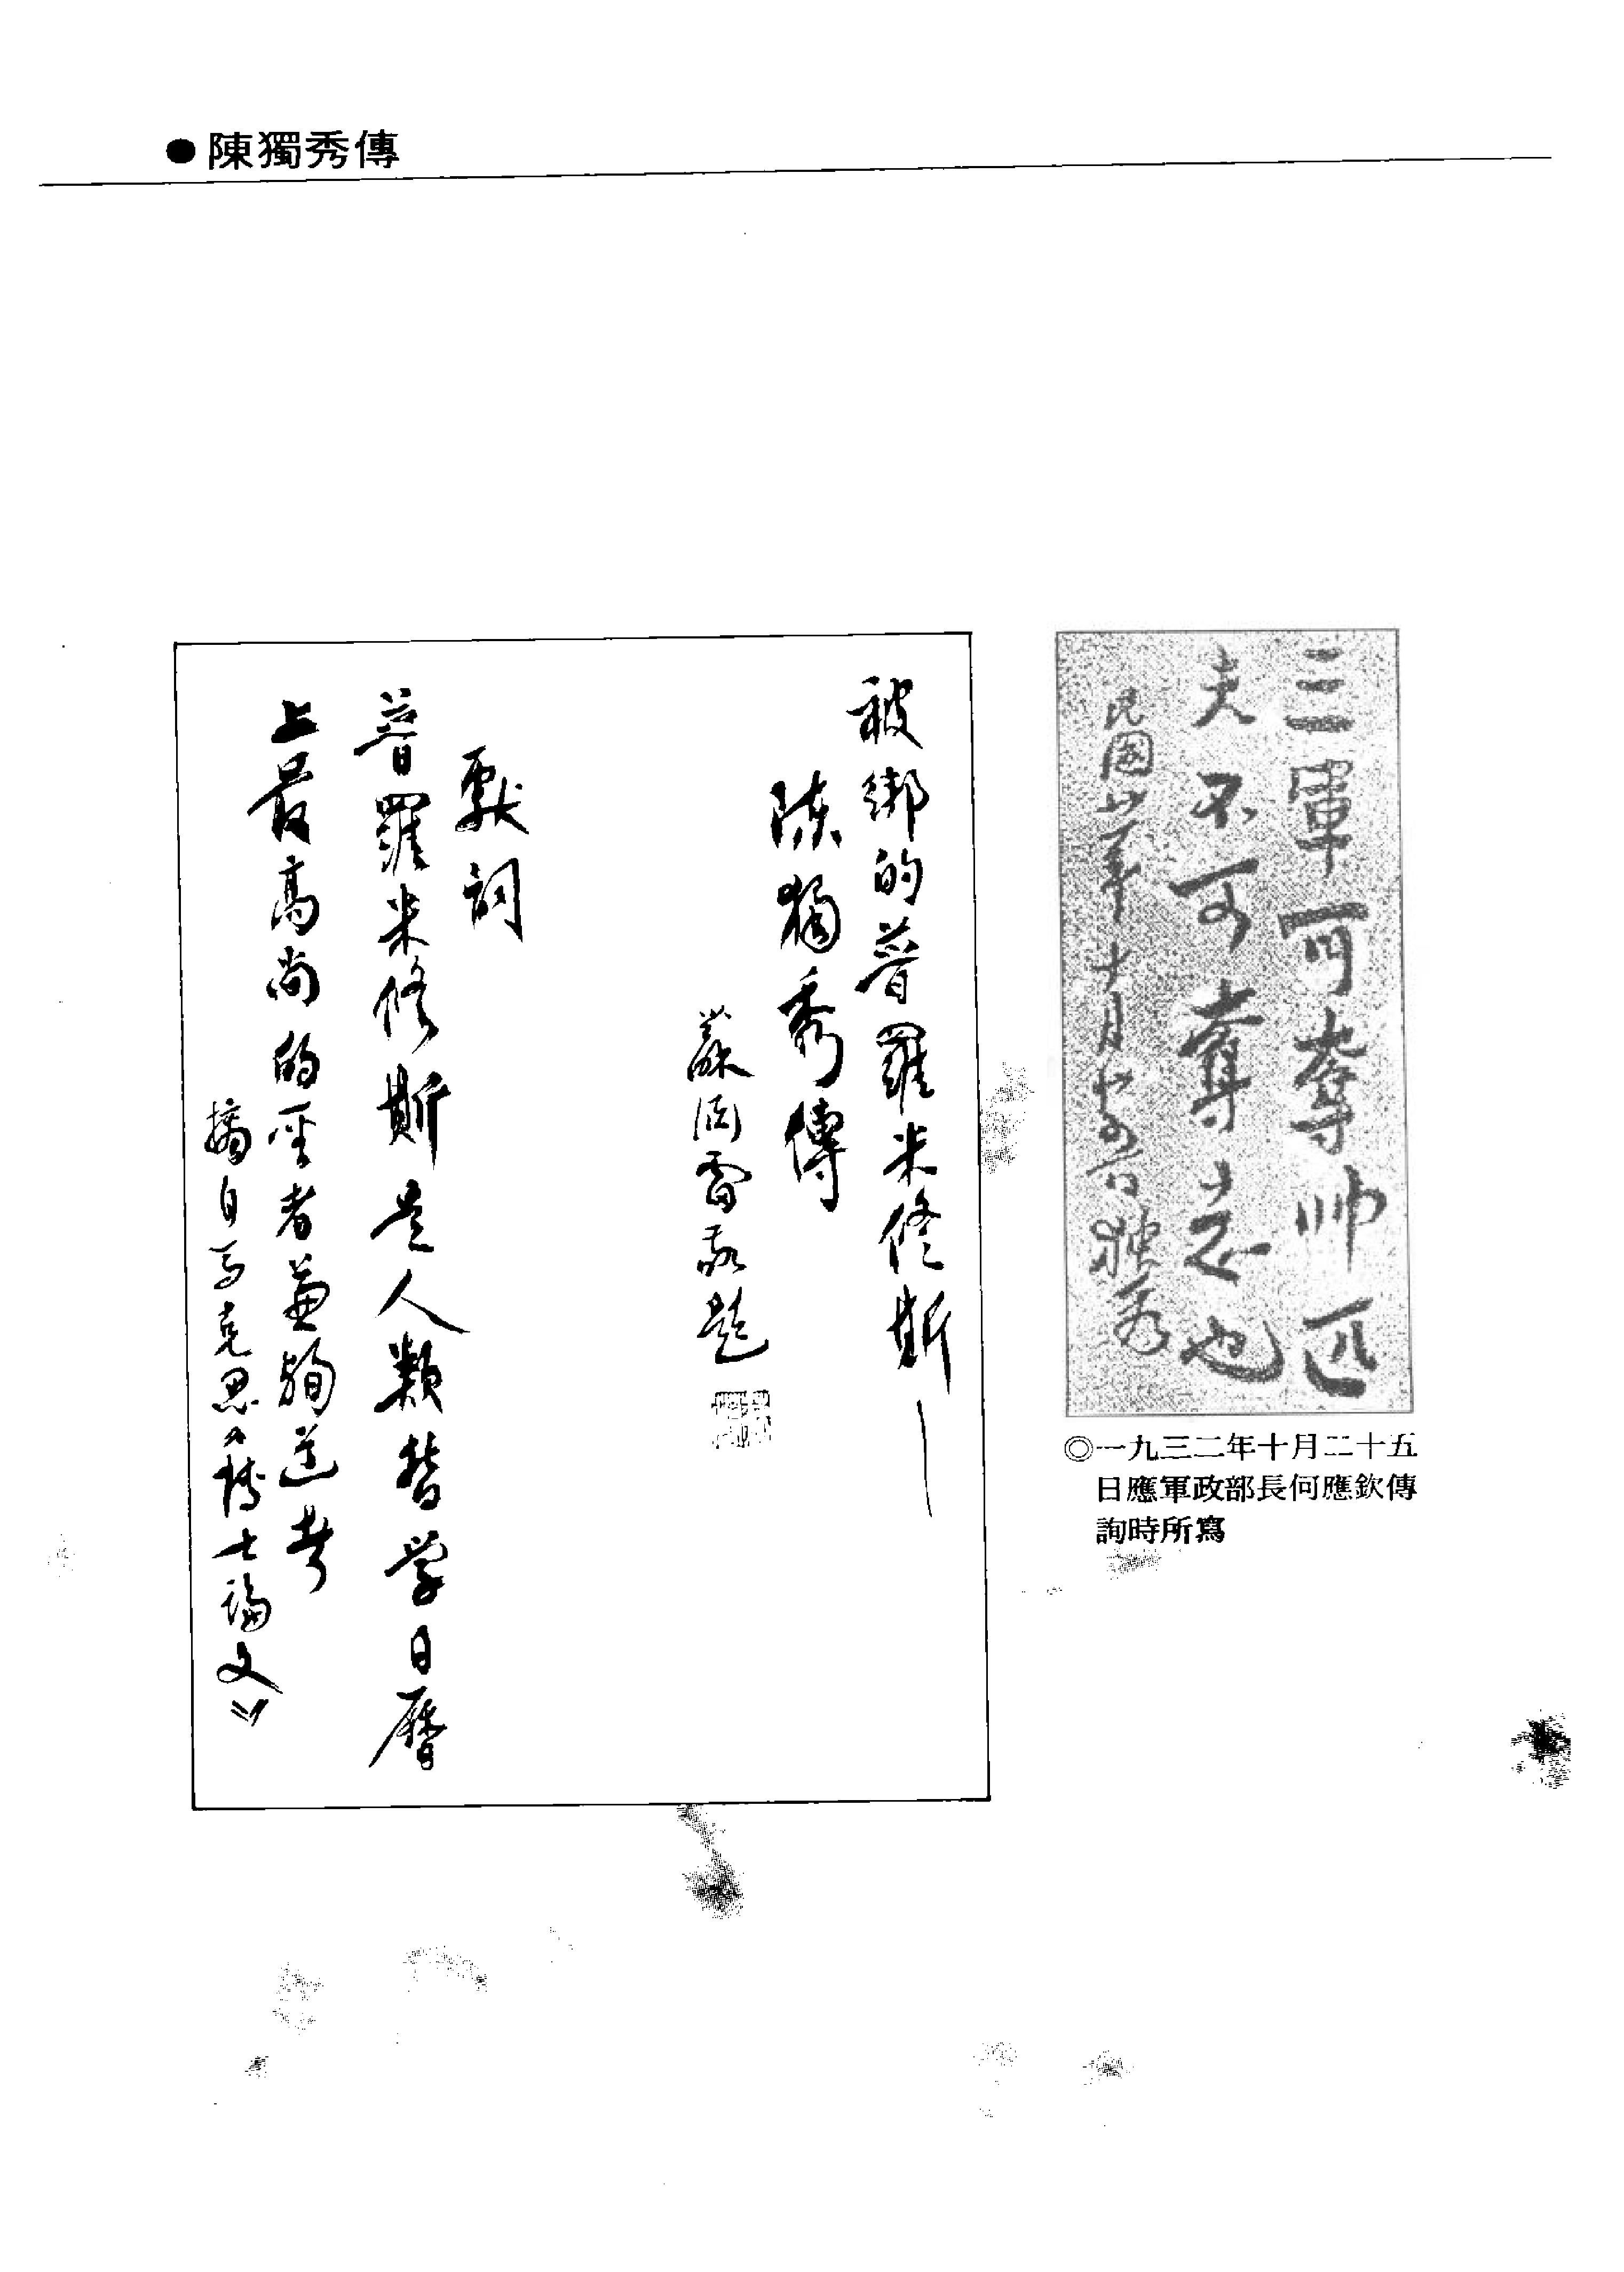 ●陳獨秀傳
三軍可奪帥匹
夫不可奪志也
民國廿一年十月廿五日 独秀
◎一九三二年十月二十五
日應軍政部長何應欽傳
詢時所寫
被綁的普羅米修斯—
陳獨秀傳
蘇淵雷敬題
獻詞
普羅米修斯是人類哲学日曆
上最高尚的聖者兼殉道者
摘自馬克思《博士論文》